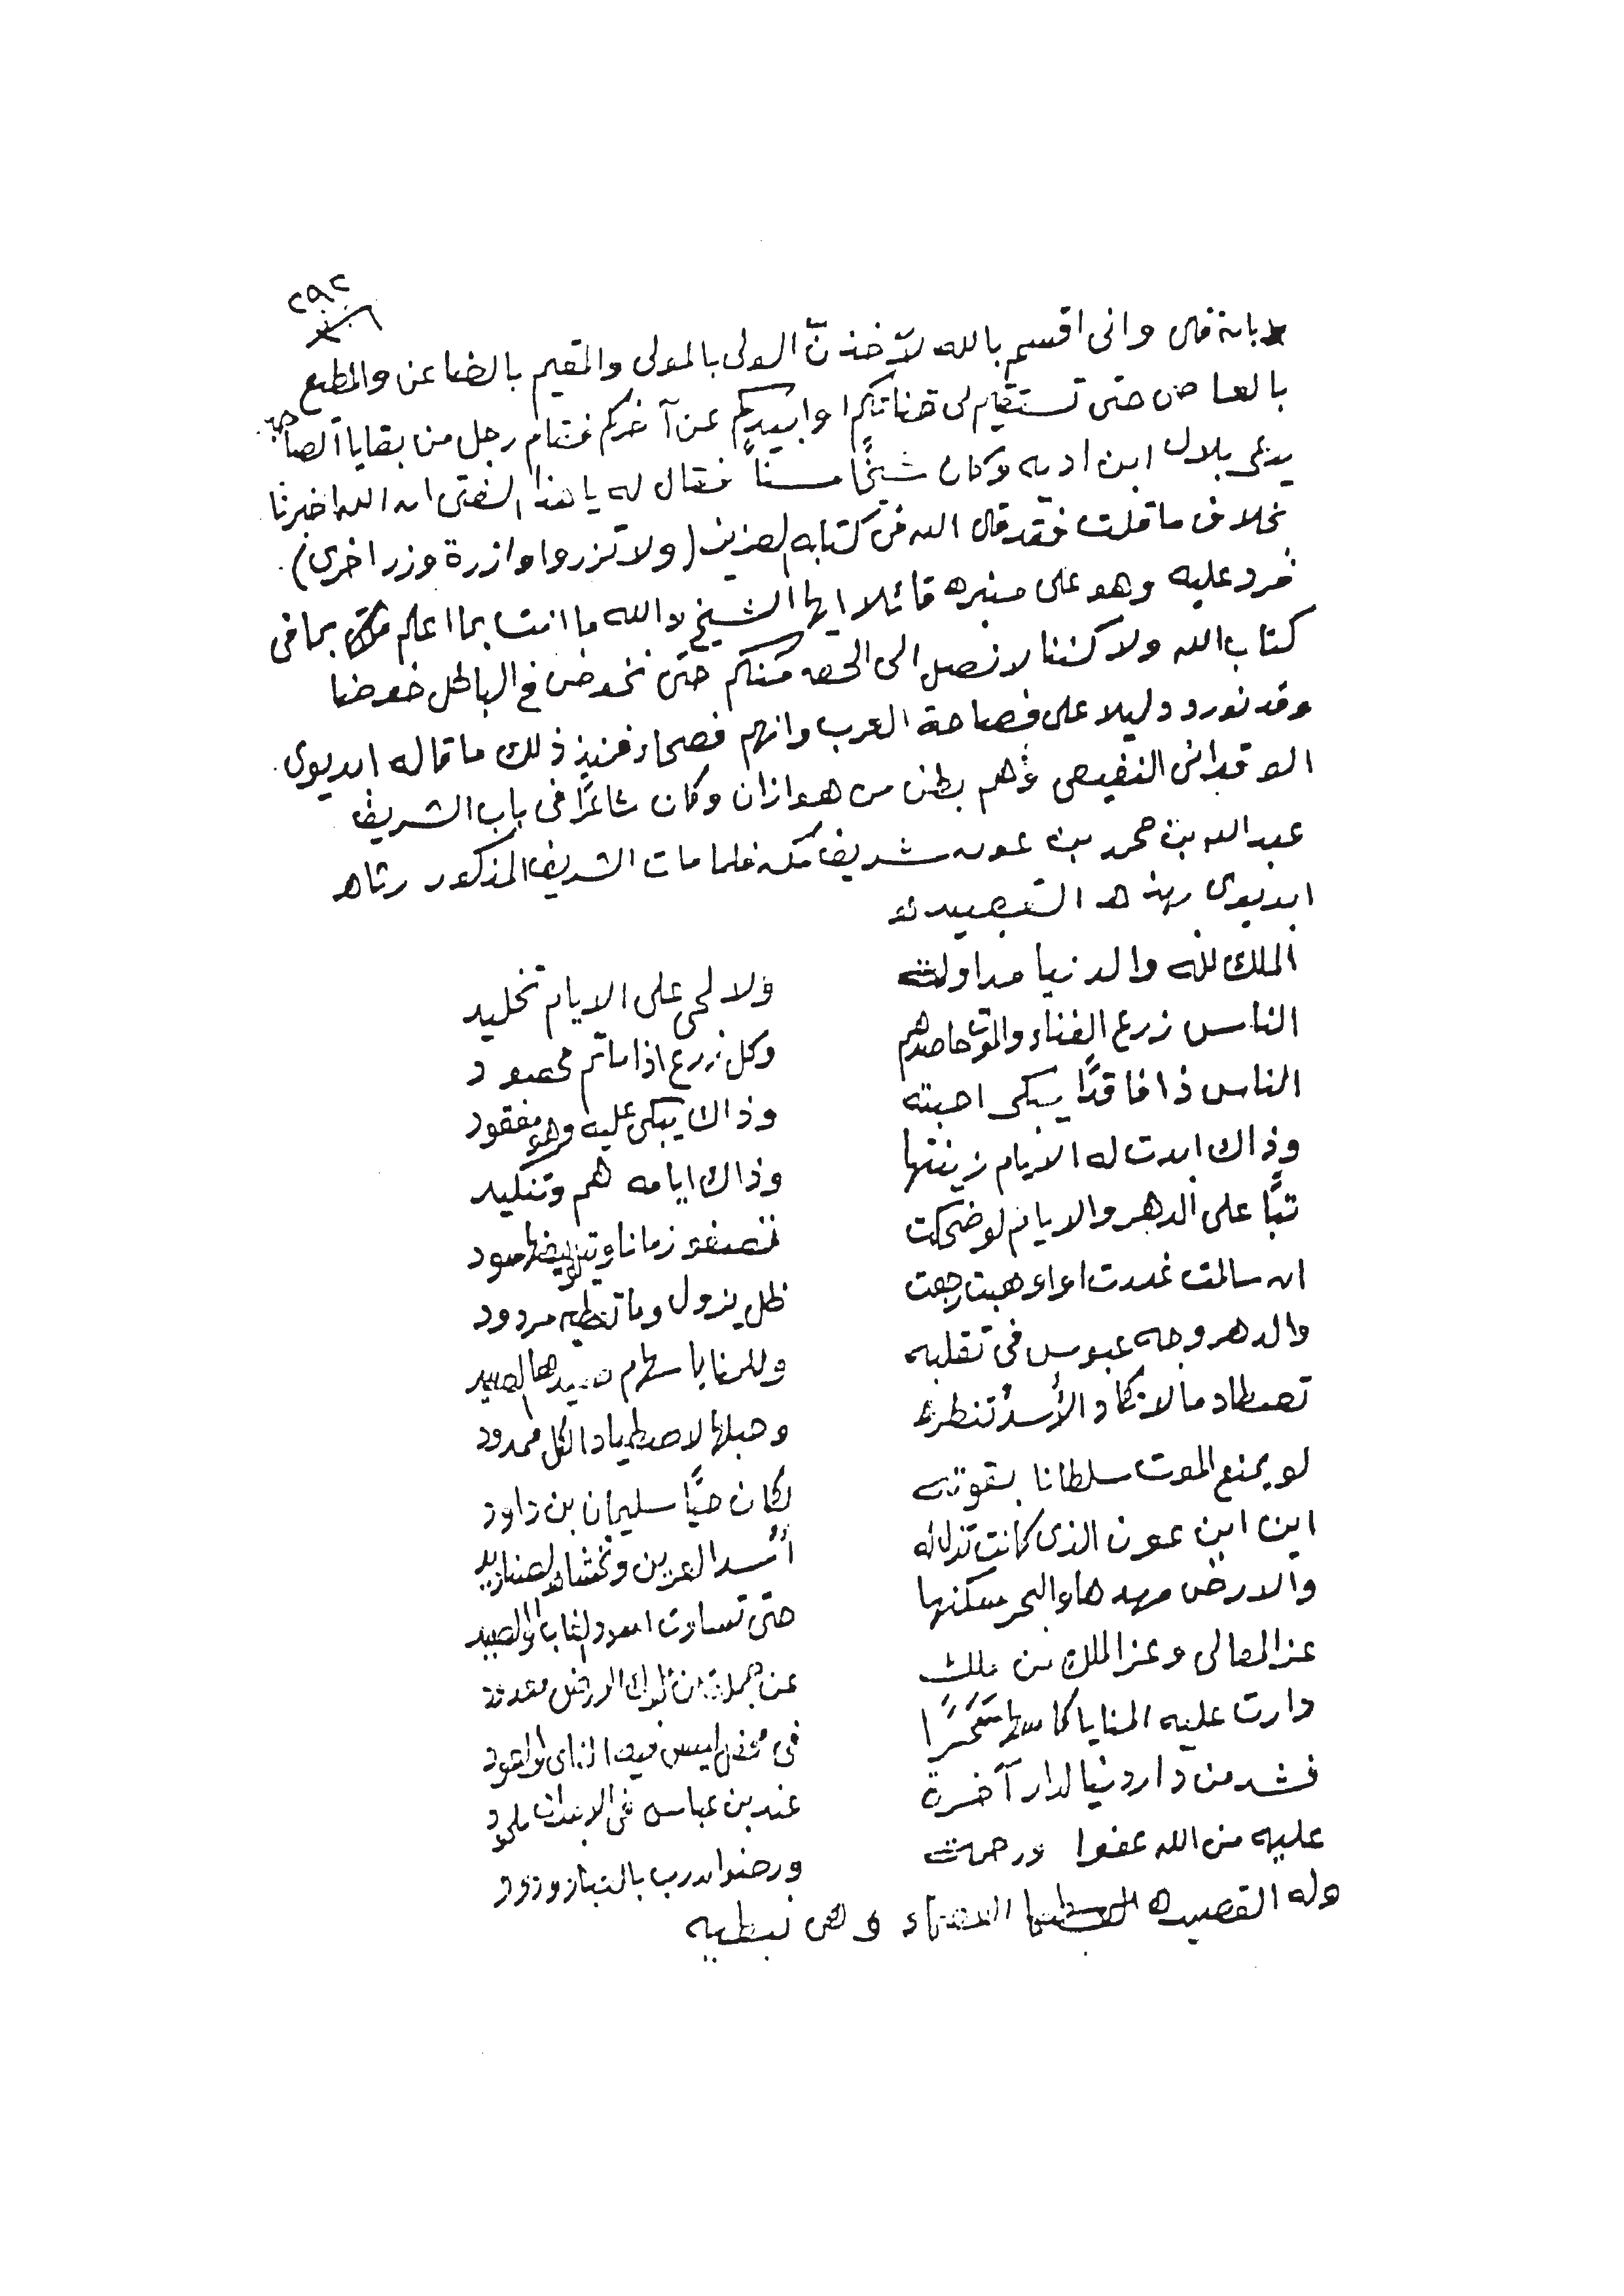 ٢٩٢
بانه قال وانى اقسم بالله لآخذنّ الولى بالمولى والمقيم بالضاعن والمطيع
بالعاصى حتى تستقيم لى قناتكم او ابيدكم عن آخركم فقام رجل من بقايا الصحابه
يدعى بلال ابن اديه وكان شيخًا مسناً فقال له يا هذا الفتى ان الله اخبرنا
بخلاف ما قلت فقد قال الله فى كتابه العزيز (ولا تزروا وازرة وزر اخرى) .
فرد عليه وهو على منبره قائلا ايها الشيخ والله ما انت بما اعلم منى بما فى
كتاب الله ولا كننا لا نصل الى الحق منكم حتى نخوض فى الباطل خوضا
وقد نورد دليلا على فصاحة العرب وانهم فصحاء فمنذ ذلك ما قاله ابديوى
الوقدانى النفيعى وهم بطن من هوازان وكان شاعرًا فى باب الشريف
عبدالله بن محمد بن عون شريف مكه فلما مات الشريف المذكور رثاه
ابديوى بهذه القصيده
الملك لله والدنيا مداولت ولا لحى على الايام تخليد
الناس زرع الفناء والموت حاصدهم وكل زرع اذا ماتم محصود
الناس ذا فاقدًا يبكى احبته وذاك يبكى عليه وهو مفقود
وذاك ابدت له الايام زينتها وذاك ايامه هم وتنكيد
تبًا على الدهر والايام لو ضحكت تصفو زمانا و سود
ان سالمت غدرت او اوهبت رجعت ظل يزول وما تعطيه مردود
والدهر وجه عبوس فى تقلبه وللمنايا سهام الصيد
تصطاد مالا تكاد الأسدُ تنظره وحبلها لاصطياد الكل ممدود
لو يمنع الموت سلطانا بقوته لكان حيًا سليمان بن داود
اين ابن عون الذى كانت تذل له أُسد العرين وتخشاه الصناديد
والارض مهدها والبحر سكنها حتى تساوت اسود الغاب والصيد
عز المعالى وعز الملك من ملك عن ملوك الارض
دارت عليه المنايا كاسها فى ليس فيه الناى والعود
فشد من دار دنيا لدار آخرة عند بن عباس فى ملحود
عليه من الله عفوا ورحمت ورضوان رب
وله القصيده وهى نبطيه